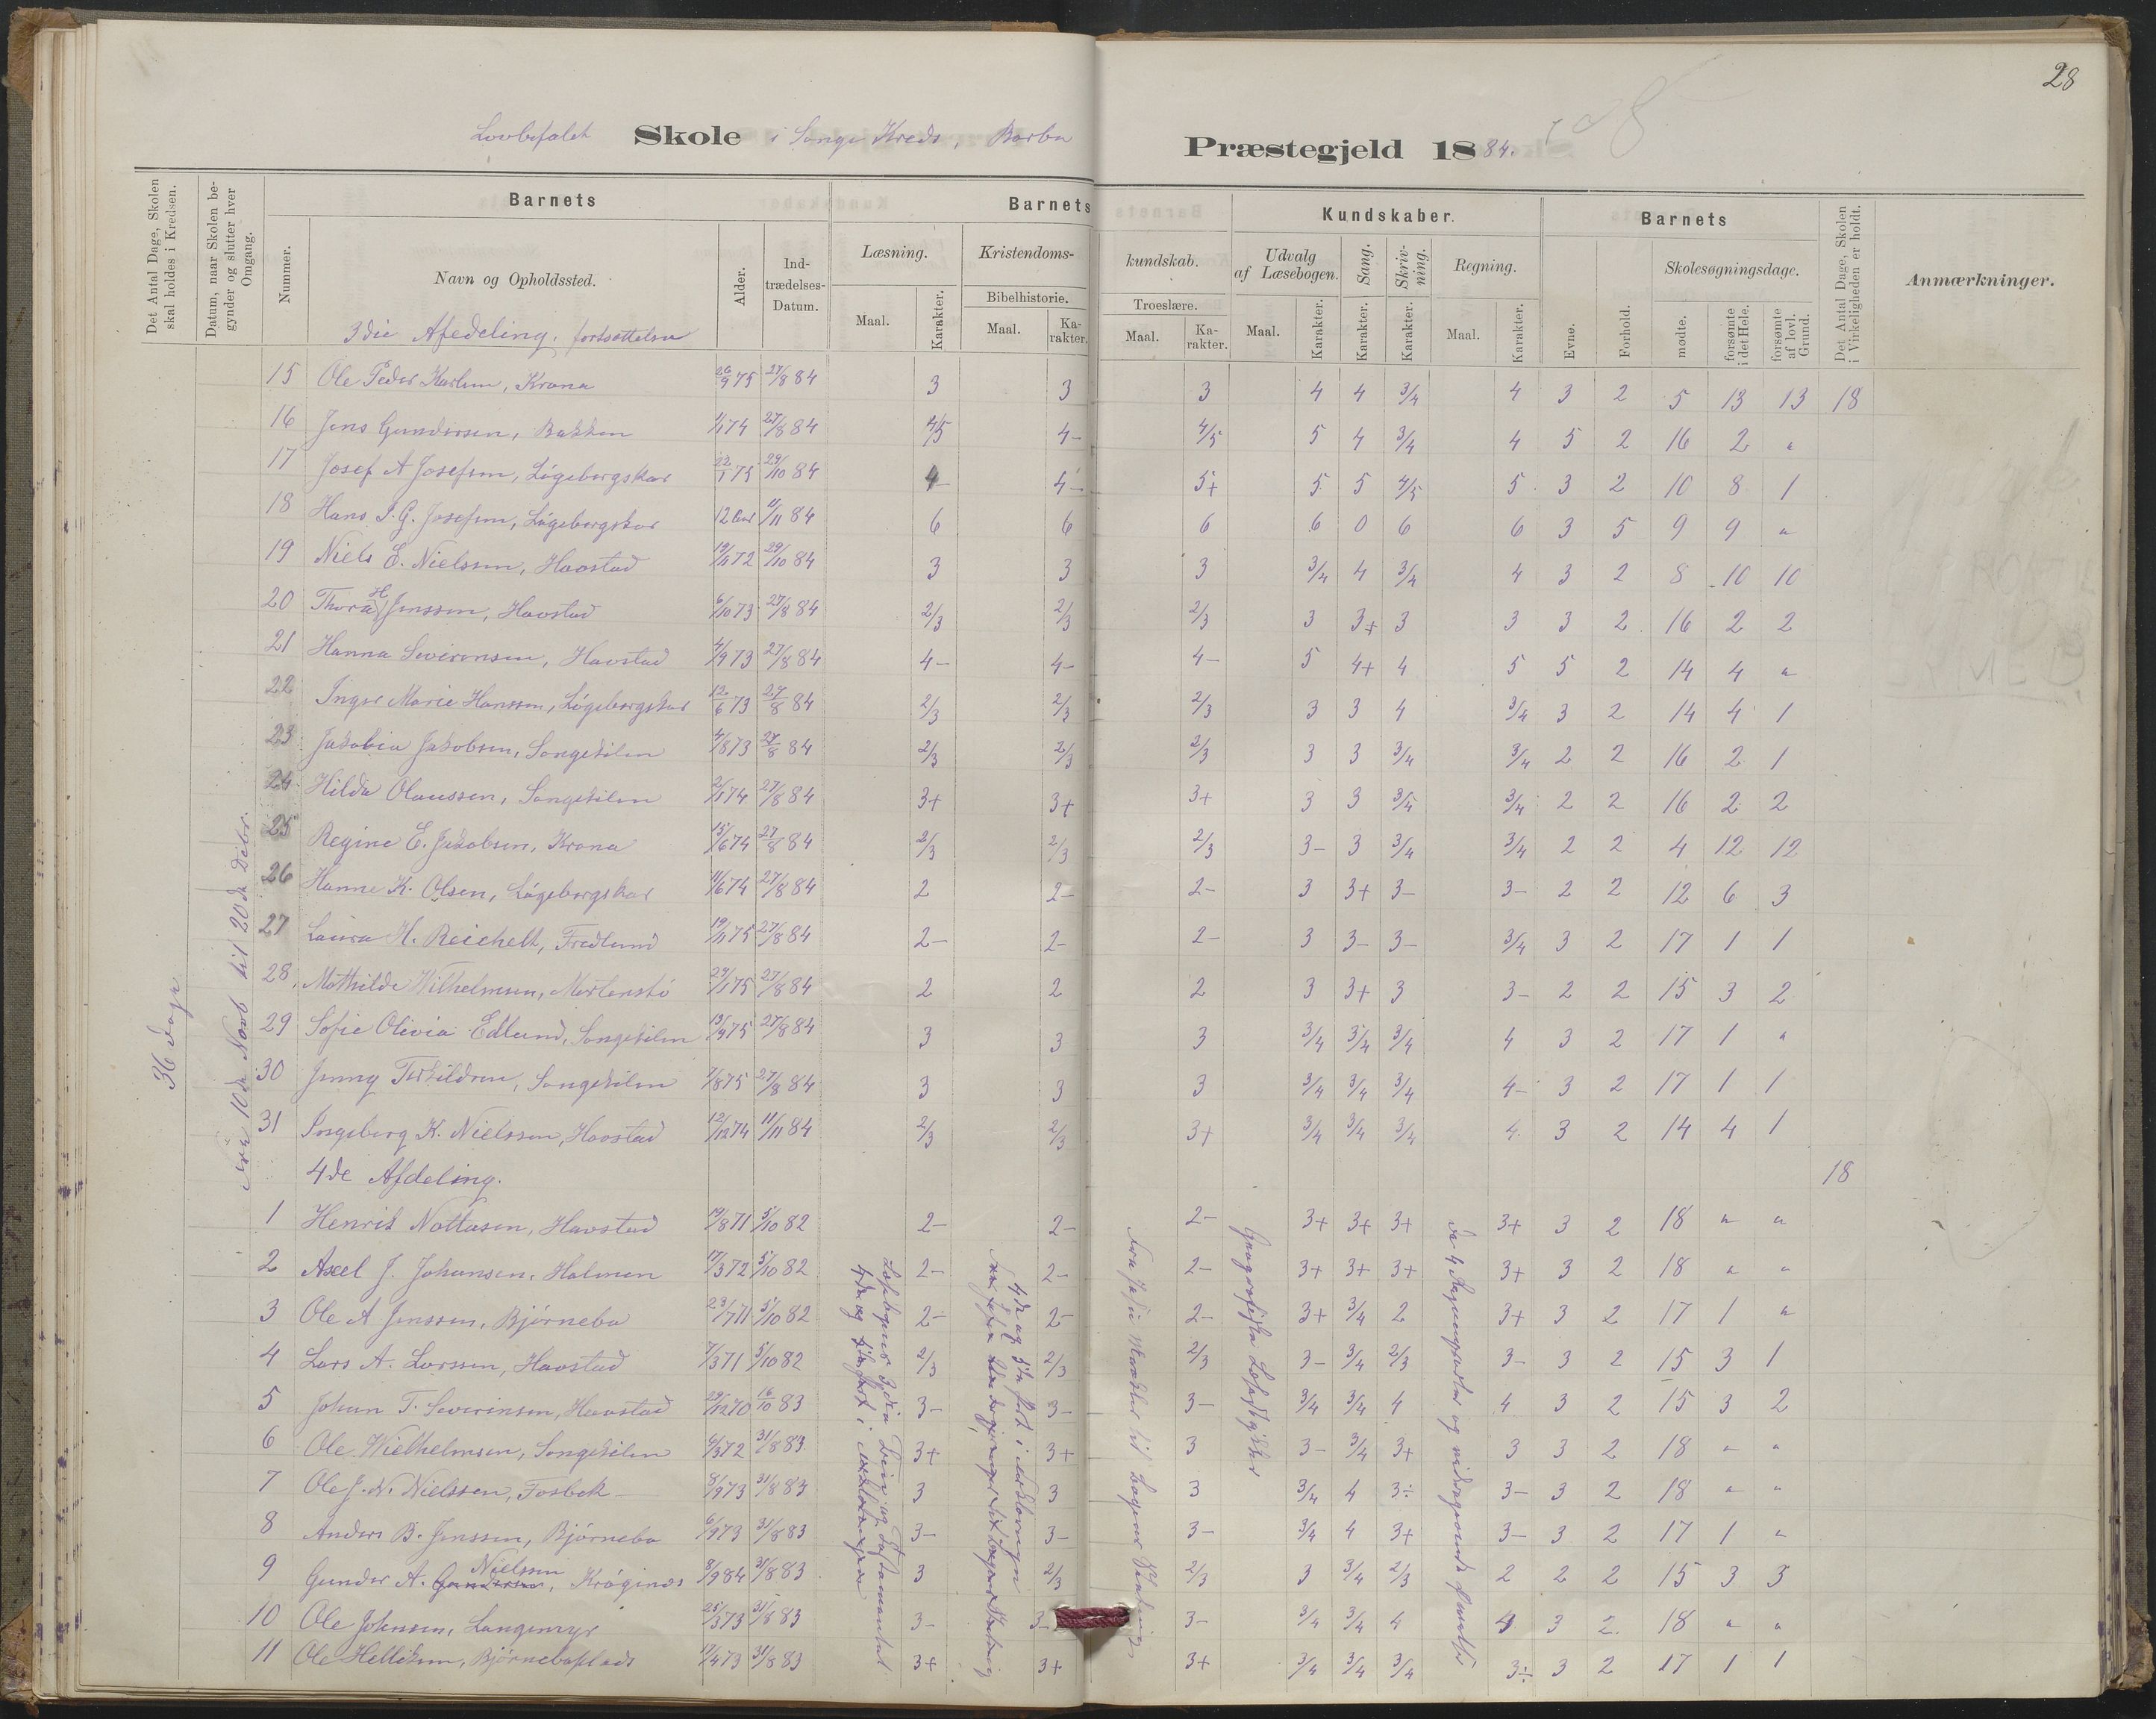 28
Lovbefalet Skole i Songe Kreds, Barbu Præstegjeld 1884.
Det Antal Dage, Skolen skal holdes i Kredsen.
Datum, naar Skolen begynder og slutter hver Omgang.
Nummer.
Barnets
Navn og Opholdssted.
Alder.
Indtrædelses-Datum.
Barnets Kundskaber.
Læsning.
Maal.
Karakter.
Kristendomskundskab.
Bibelhistorie.
Maal.
Karakter.
Troeslære.
Maal.
Karakter.
Udvalg af Læsebogen.
Maal.
Karakter.
Sang.
Karakter.
Skrivning.
Karakter.
Regning.
Maal.
Karakter.
Barnets
Evne.
Forhold.
Skolesøgningsdage.
mødte.
forsømte i det Hele.
forsømte af lovl. Grund.
Det Antal Dage, Skolen i Virkeligheden er holdt.
Anmærkninger.
36 dage
fra 10de Novb til 20de Debr.
3die Afedeling. fortsættelse
15 Ole Peder Karlsen, Krona 26/9 75 27/8 84 3 3 3 4 4 3/4 4 3 2 5 13 13 18
16 Jens Gundersen, Bakken 1/1 74 27/8 84 4/5 4- 4/5 5 4 3/4 4 5 2 16 2 "
17 Josef A Josefsen, Løgebergskar 22/1 75 29/10 84 4- 4- 5+ 5 5 4/5 5 3 2 10 8 1
18 Hans J. G. Josefsen, Løgebergskar 12 Aar 11/11 84 6 6 6 6 0 6 6 3 5 9 9 "
19 Niels E. Nielssen, Havstad 19/11 72 29/10 84 3 3 3 3/4 4 3/4 4 3 2 8 10 10
20 Thora H Jenssen, Havstad 6/10 73 27/8 84 2/3 2/3 2/3 3 3+ 3 3 3 2 16 2 2
21 Hanna Severinsen, Havstad 4/9 73 27/8 84 4- 4- 4- 5 4+ 4 5 5 2 14 4 "
22 Inger Marie Hanssen, Løgebergskar 12/6 73 27/8 84 2/3 2/3 2/3 3 3 4 3/4 3 2 14 4 1
23 Jakobia Jakobsen, Songekilen 4/8 73 27/8 84 2/3 2/3 2/3 3 3 3/4 3/4 2 2 16 2 1
24 Hilda Olaussen, Songekilen 2/1 74 27/8 84 3+ 3+ 3+ 3 3 3/4 3/4 2 2 16 2 2
25 Regine E. Jakobsen, Krona 15/6 74 27/8 84 2/3 2/3 2/3 3- 3 3/4 3/4 2 2 4 12 12
26 Hanne K. Olsen, Løgebergskar 11/6 74 27/8 84 2 2- 2- 3 3+ 3- 3- 2 2 12 6 3
27 Laura H. Reichelt, Fredlund 19/11 75 27/8 84 2- 2- 2- 3 3- 3- 3/4 3 2 17 1 1
28 Mathilde Wilhelmsen, Mortenstø 24/1 75 27/8 84 2 2 2 3 3+ 3 3- 2 2 15 3 2
29 Sofie Olivia Edlund, Songekilen 13/9 75 27/8 84 3 3 3 3/4 3/4 3/4 4 3 2 17 1 "
30 Jenny Terkildsen, Songekilen 7/8 75 27/8 84 3 3 3 3/4 3/4 3/4 4- 3 2 17 1 1
31 Ingeborg K. Nielssen, Havstad 12/12 74 11/11 84 2/3 2/3 3+ 3/4 3/4 3/4 4 3 2 14 4 1
4de Afdeling. 18
1 Henrik Nottosen, Havstad 19/8 71 5/10 82 2- 2- 2- 3+ 3+ 3+ 3+ 3 2 18 " "
2 Axel J. Johansen, Holmen 17/3 72 5/10 82 2- 2- 2- 3+ 3+ 3+ 3+ 3 2 18 " "
3 Ole A Jenssen, Bjørnebo 23/7 71 5/10 82 2- 2- 2- 3+ 3/4 2 3+ 3 2 17 1 "
4 Lars A. Larssen, Havstad 7/3 71 5/10 82 2/3 2/3 2/3 3- 3/4 2/3 3- 3 2 15 3 1
5 Johan T. Severinsen, Havstad 29/12 70 16/10 83 3- 3- 3- 3/4 3/4 4 4 3 2 15 3 2
6 Ole Wielhelmsen, Songekilen 6/3 72 31/8 83 3+ 3+ 3 3- 3/4 3+ 3 3 2 18 " "
7 Ole J. N. Nielssen, Fosbek 8/9 73 31/8 83 3 3 3 3/4 4 3÷ 3- 3 2 18 " "
8 Anders B. Jenssen, Bjørnebo 6/9 73 31/8 83 3- 3- 3- 3/4 4 3+ 3- 3 2 17 1 "
9 Gunder A. Nielssen, Krøgenes 8/9 84 31/8 83 3 2/3 2/3 3 3/4 2/3 2 2 2 15 3 3
10 Ole Johnsen, Langemyr 25/3 73 31/8 83 3- 3- 3- 3/4 3/4 4 4 3 2 18 " "
11 Ole Helliksen, Bjørneboplads 17/4 73 31/8 83 3+ 3+ 3+ 3/4 3/4 3/4 3÷ 3 2 17 1 1